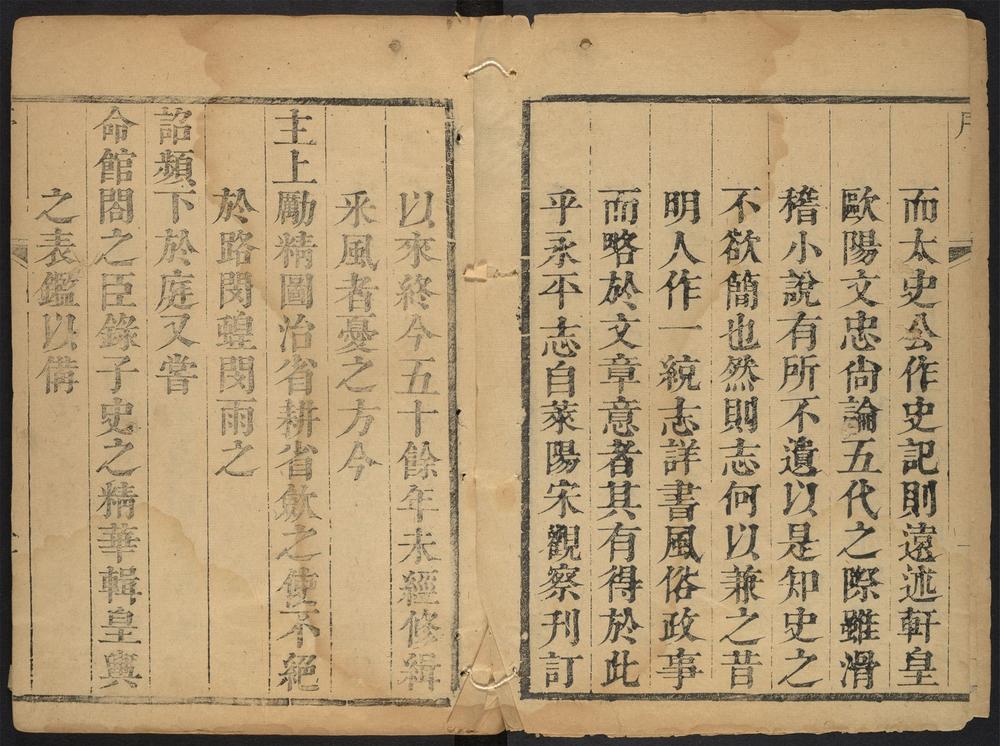 而太史公作史記則遠述軒皇
歐陽文忠尙論五代之際雖滑
稽小說有所不遺以是知史之
不欲簡也然則志何以兼之昔
明人作一統志詳書風俗政事
而略於文章意者其有得於此
乎永平志自萊陽宋觀察刊訂
以來終今五十餘年未經修緝
釆風者憂之方今
主上勵精圖治省耕省斂之使不絕
於路閔蝗閔雨之
詔頻下於庭又嘗
命館閣之臣錄子史之精華輯皇輿
之表鑑以備